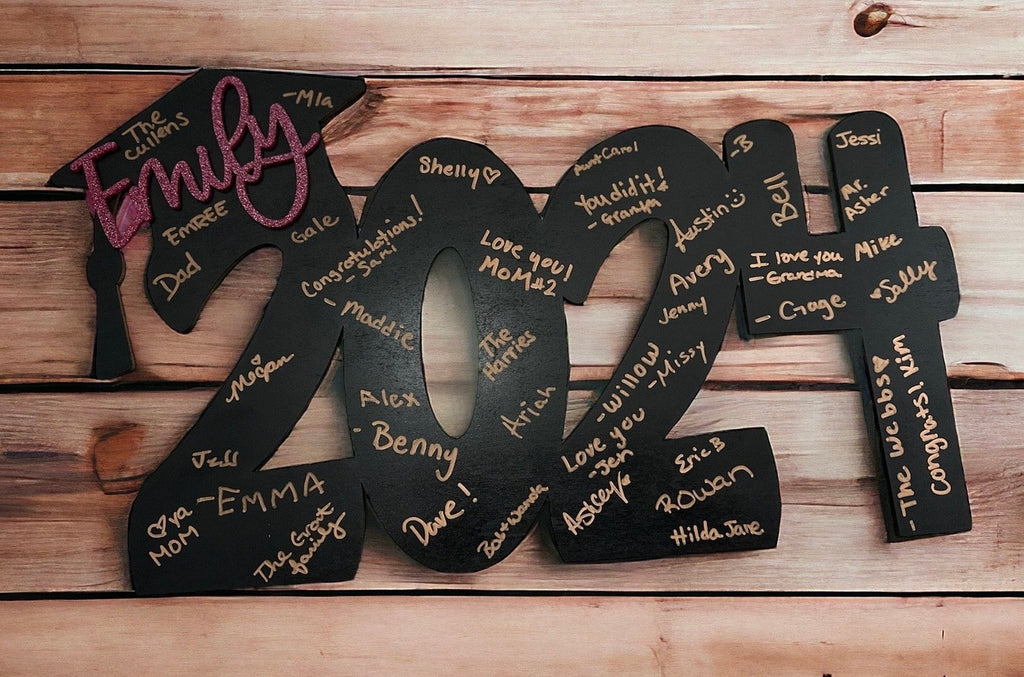 Emily
2024
The
Cullens
-Mia
EMREE
Gale
Dad
-Megan
Jess
-EMMA
♡ ya
MOM
The Grant
family
Shelly♡
Congratulations!
Sami
Love you!
MOM#2
- Maddie
The
Harries
Alex
- Benny
Ariah
Dave!
Bob+Wanda
Aunt Carol
You did it!
- Grandpa
Austin☺
Avery
Jenny
-Willow
-Missy
Love you
-Jen
Eric B
ROWAN
Hilda Jane
-B
Bell
Jessi
Mr.
Asher
I love you
-Grandma
Mike
♡Sally
- Gage
-The Webbs♡
Congrats! Kim